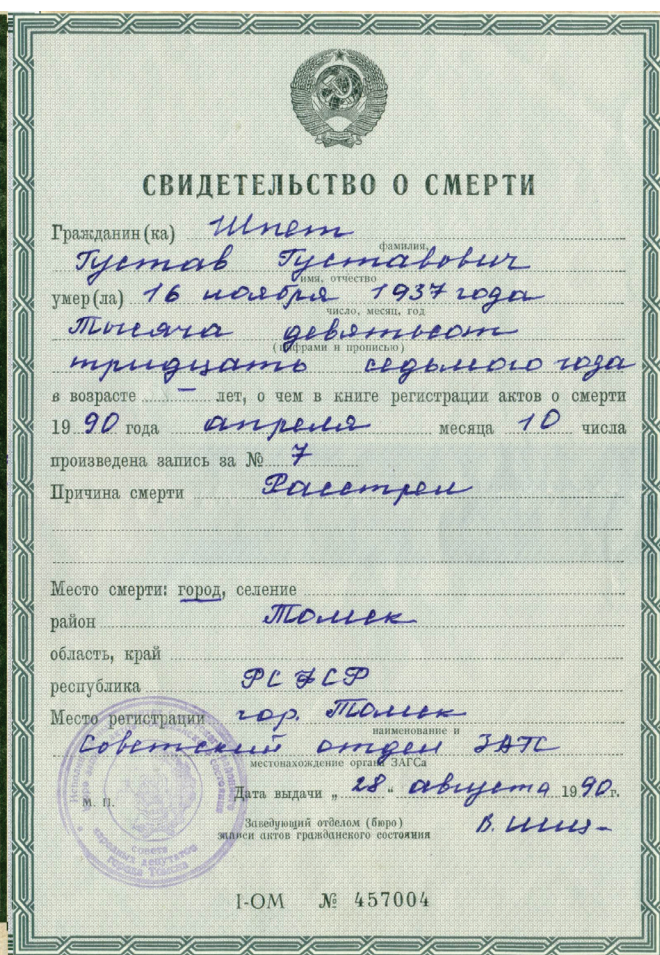 СВИДЕТЕЛЬСТВО О СМЕРТИ
Гражданин(ка) Шпет
фамилия,
Густав Густавович
имя, отчество
умер(ла) 16 ноября 1937 года
число, месяц, год
Тысяча девятьсот
(цифрами и прописью)
тридцать седьмого года
в возрасте – лет, о чем в книге регистрации актов о смерти
1990 года апреля месяца 10 числа
произведена запись за № 7
Причина смерти Расстрел
Место смерти: город, селение
район Томск
область, край
республика РСФСР
Место регистрации гор. Томск
наименование и
Советский отдел ЗАГС
местонахождение органа ЗАГСа
Дата выдачи „28“ августа 1990 г.
М. П.
Заведующий отделом (бюро)
записи актов гражданского состояния
совета
народных депутатов
города Томска
I-ОМ № 457004